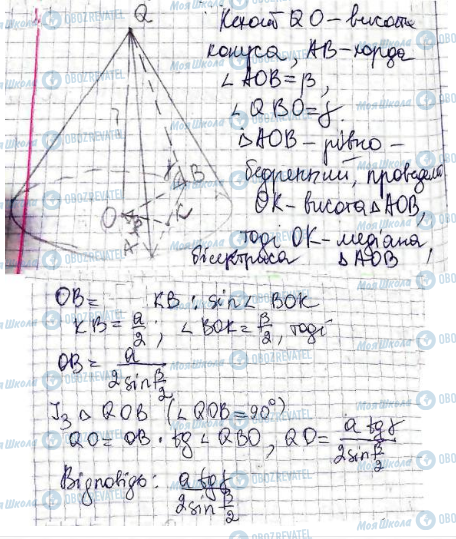 Q
Нехай QO – висота
конуса, AB – хорда
∠AOB = β,
∠QBO = γ.
△AOB – рівно-
бедрений, проведемо
OK – висота △AOB,
тоді OK – медіана,
бісектриса △AOB
γ B
O β K
A
OB = KB : sin∠BOK
KB = a/2 ; ∠BOK = β/2, тоді
OB = a/(2 sin β/2)
Із △QOB (∠QOB = 90°)
QO = OB · tg∠QBO, QO = a tgγ/(2 sin β/2)
Відповідь: a tgγ/(2 sin β/2)